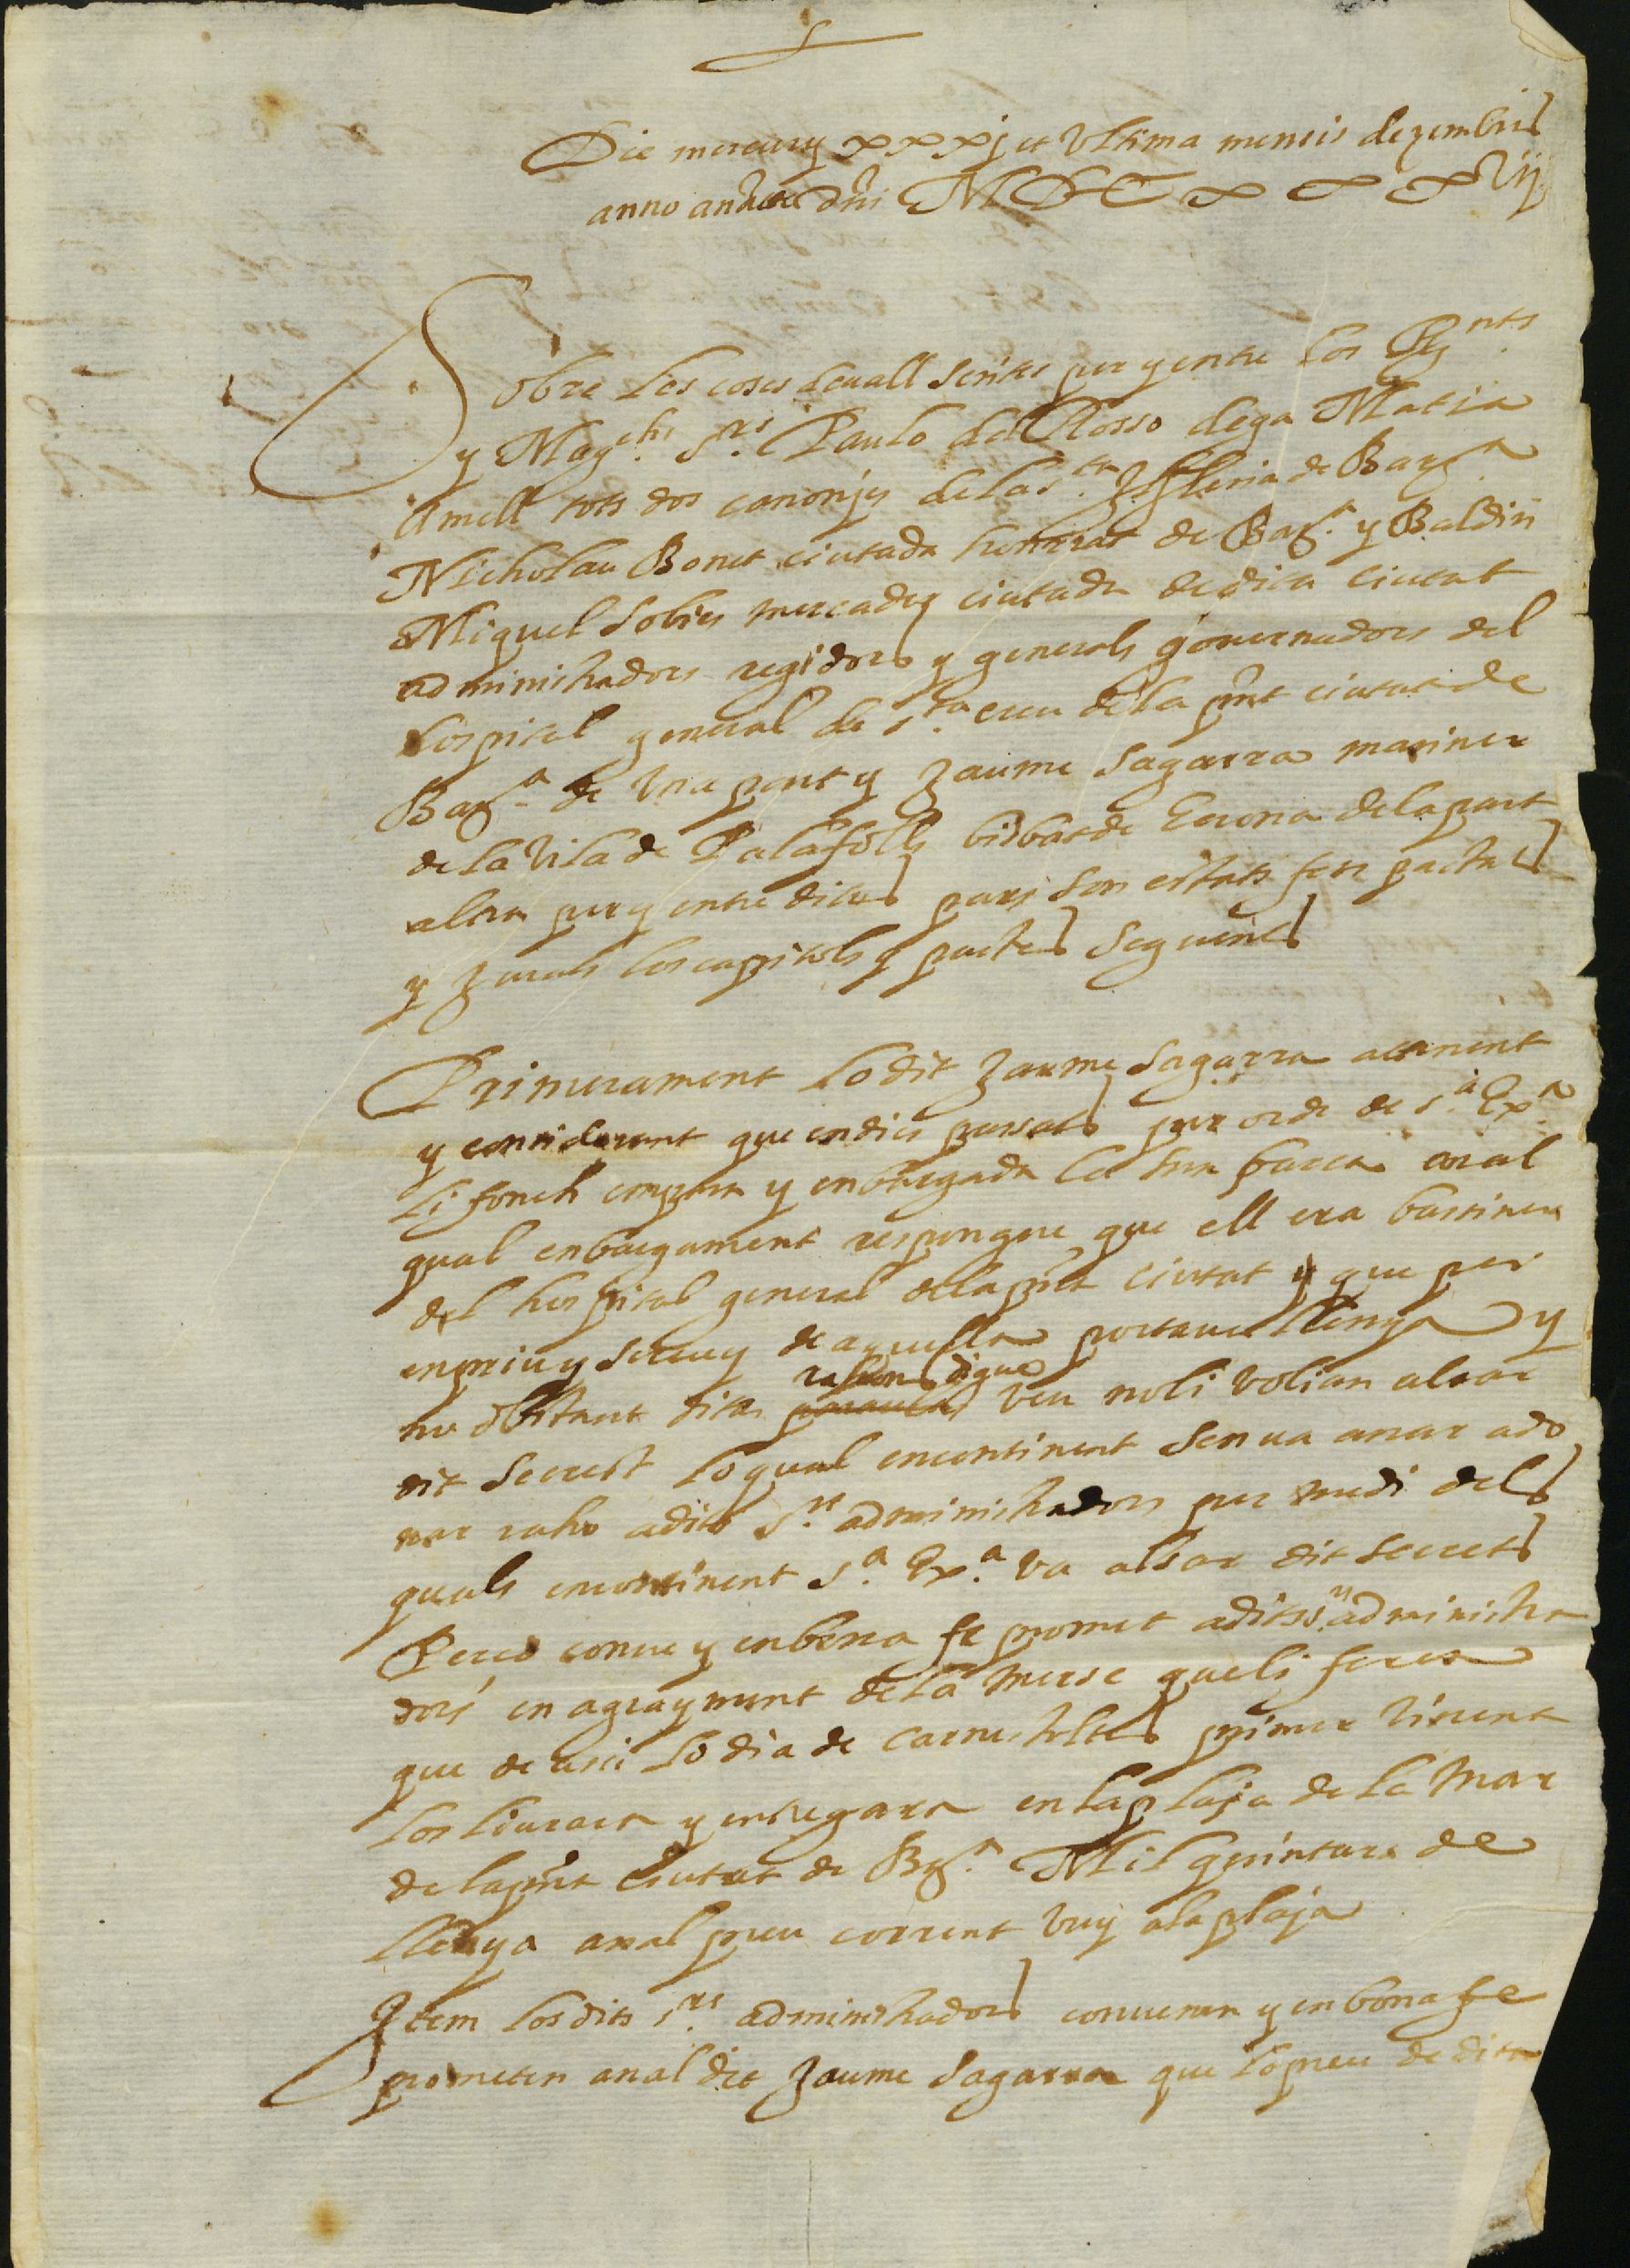 Die mercurii xxxj et ultima mensis dezembris
anno anat. Dni MDCxxxvij
Sobre les coses devall scrites per y entre los Rnts
y Magchs Srs Paulo del Rosso dega Matia
Amell tots dos canonjes de la Sta Iglesia de Barna
Nicholau Bonet ciutada honrrat de Barna y Baldiri
Miquel Sobies mercader ciutada de dita ciutat
administradors regidors y generals governadors del
hospital general de Sta creu de la pnt ciutat de
Barna de una part y Jaume Sagarra mariner
de la vila de Palafolls bisbat de Gerona de la part
altra per y entre dites parts son estats fets pactats
y jurats los capitols y pactes seguents
Primerament lo dit Jaume Sagarra attenent
y considerant que en dies passats per orde de sa Exa
li fonch empara y enbargada la sua barca en al
qual enbargament respongue que ell era bassiner
del hospital general de la pnt ciutat y que per
enpriu y servey de aquella portava llenya y
no obstant dita rahons digue veu no li volian alsar
dit secrest lo qual encontinent sen va anar a do
nar raho a dits Srs administradors per medi dels
quals encontinent sa Exa va alsar dit secrets
Perço conve y en bona fe promet a dits srs administra
dors en agrayment de la merse que li feren
que de assi lo dia de carnestoltes primer vinent
los liurara y entregara en la plaja de la mar
de la pnt ciutat de Barna Mil quintars de
llenya an al preu corrent vuy a la plaja
Item los dits srs administradors convenen y en bona fe
prometen an al dit Jaume Sagarra que lo preu de dita